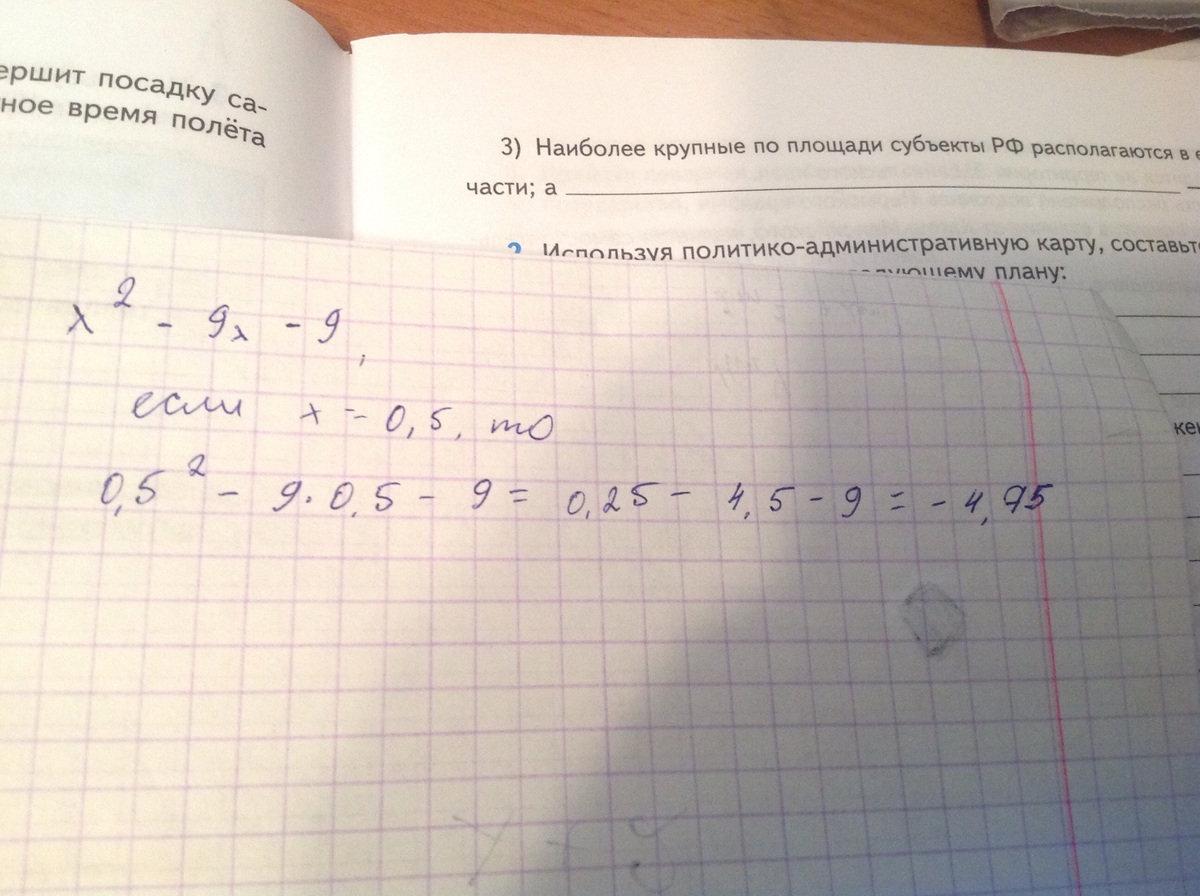 ершит посадку са-
ное время полёта
3) Наиболее крупные по площади субъекты РФ располагаются в
части; а
Используя политико-административную карту, составьте
дующему плану:
x² - 9x - 9,
если x = 0,5, то
0,5² - 9·0,5 - 9 = 0,25 - 4,5 - 9 = -4,75